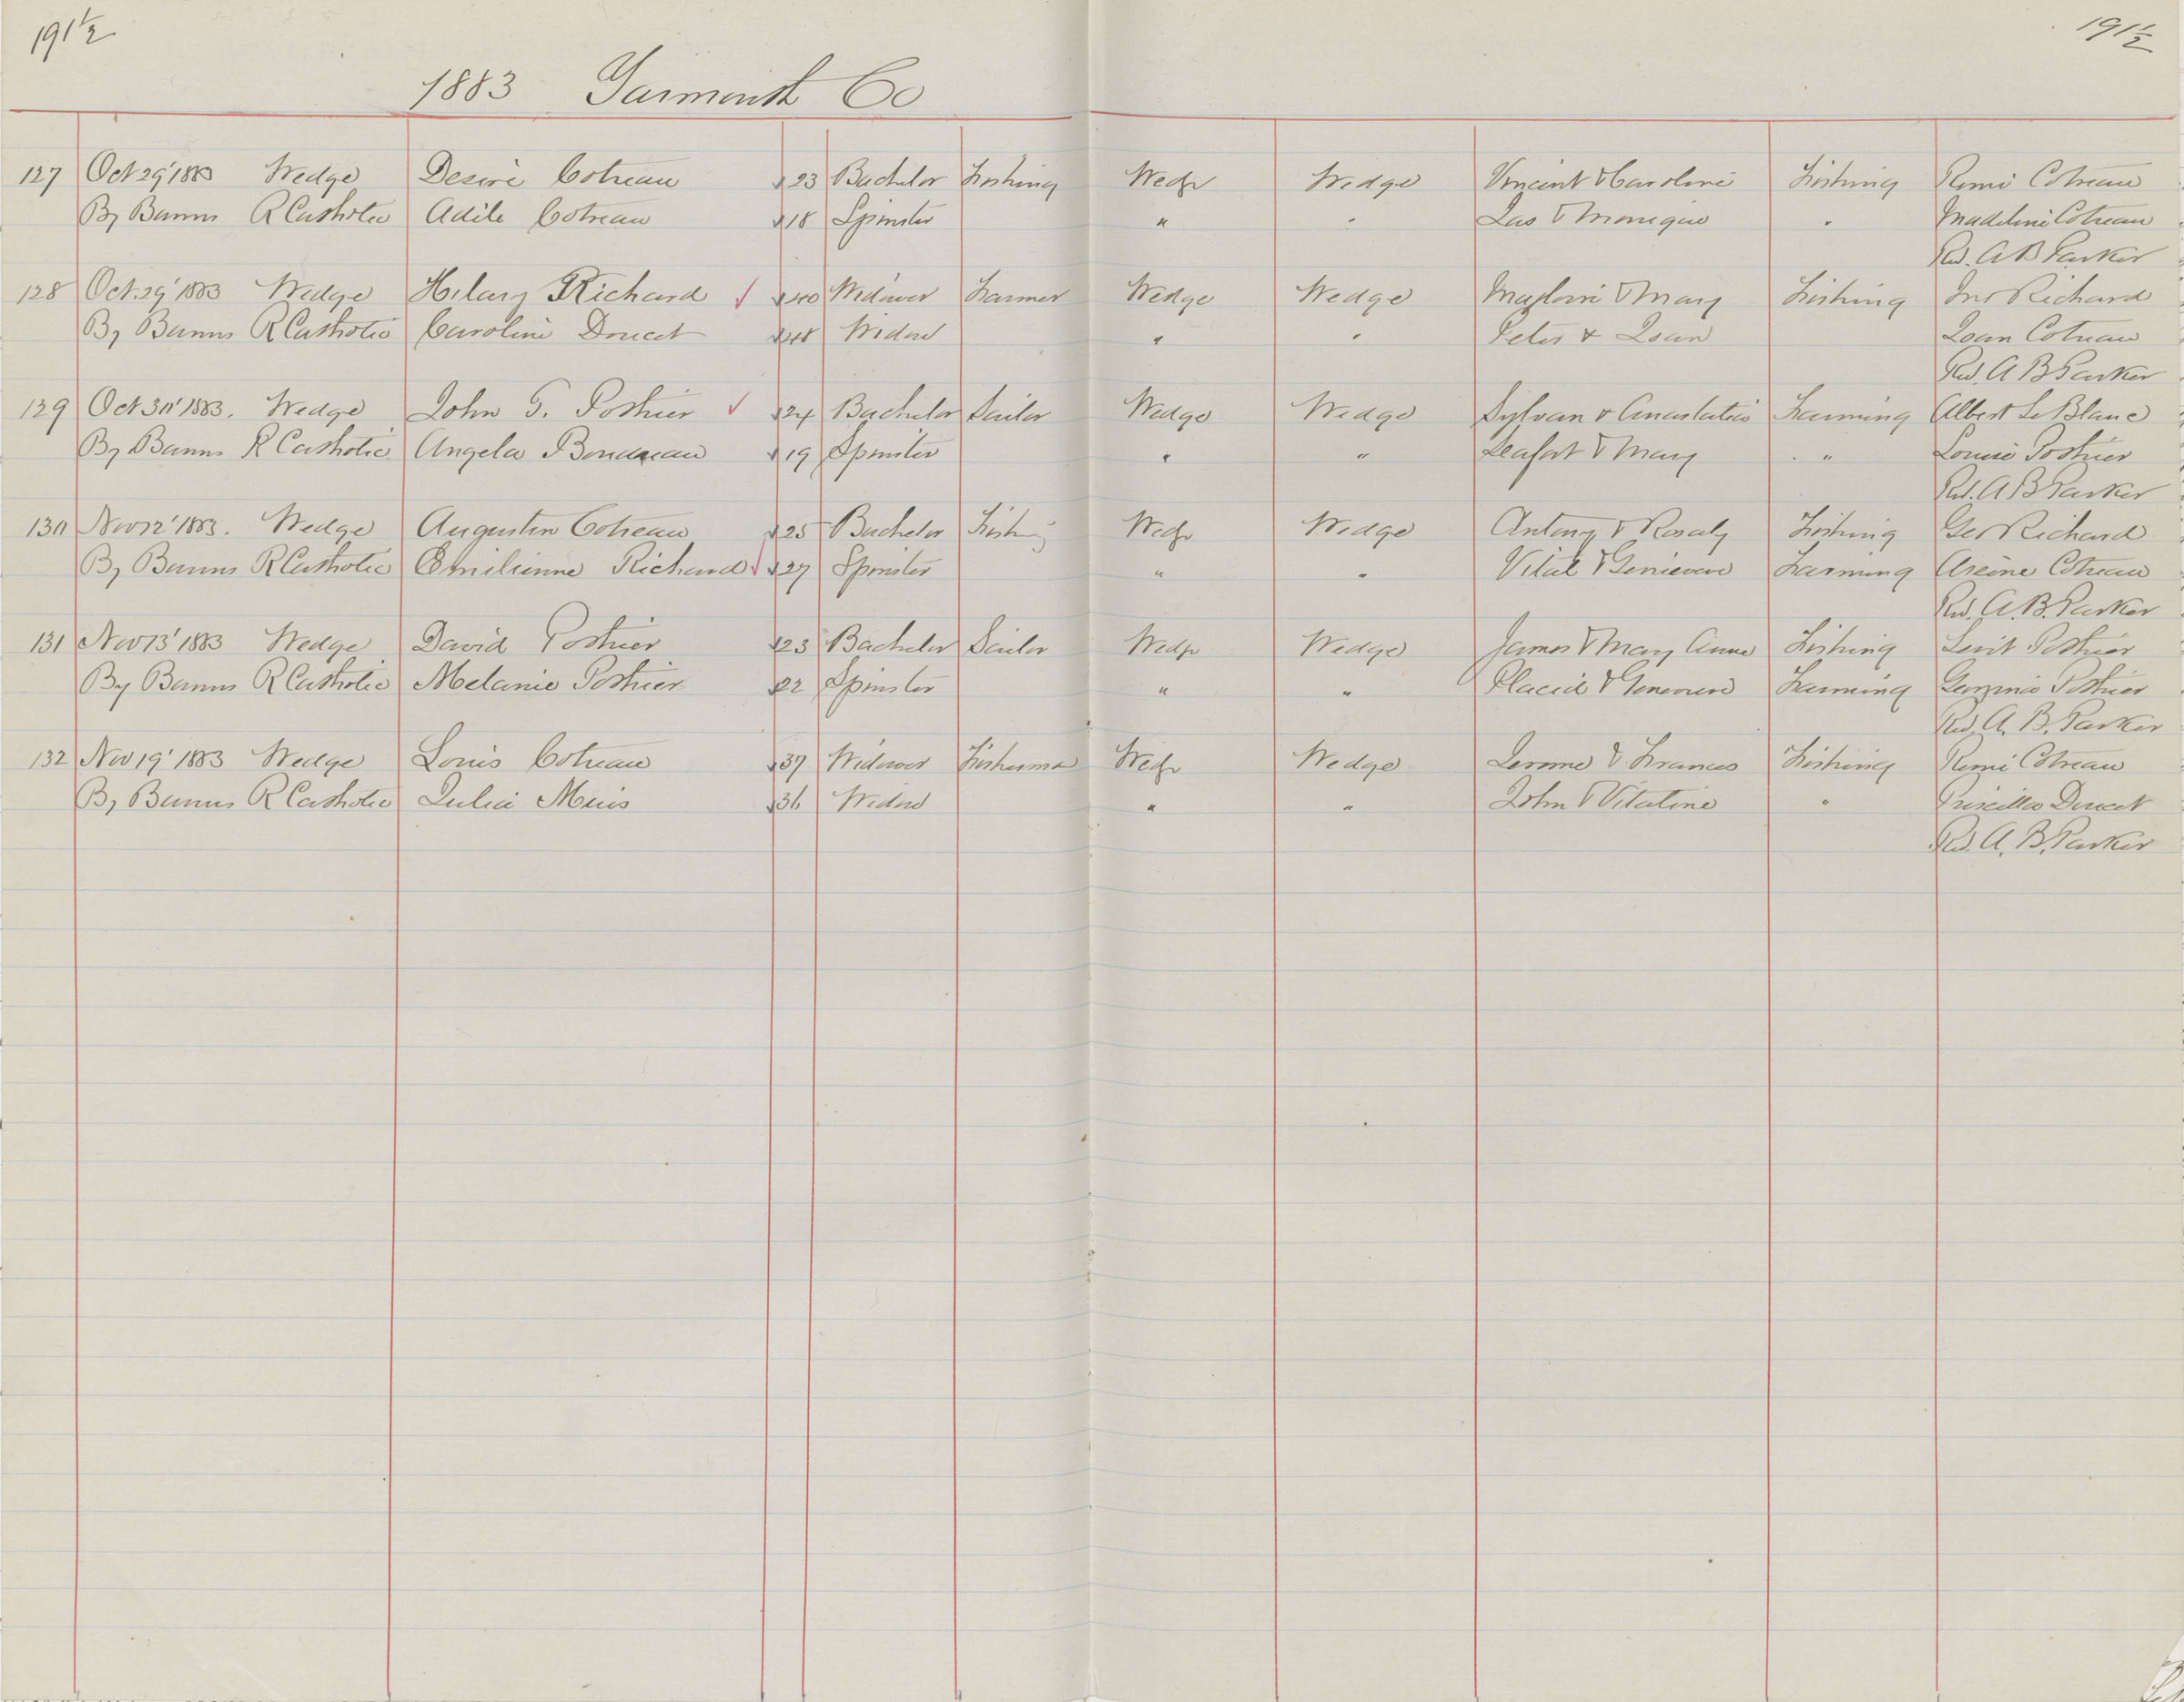 191½ 191½
1883 Yarmouth Co
127 Oct 29' 1883 Wedge Desire Cotreau 23 Bachelor Fishing Wedge Wedge Vincent & Caroline Fishing Remi Cotreau
By Banns R Catholic Adile Cotreau 18 Spinster " " Jas & Monique " Madeline Cotreau
Rev. A B Parker
128 Oct. 29' 1883 Wedge Hilary Richard ✓ 40 Widower Farmer Wedge Wedge & Mary Fishing Jno Richard
By Banns R Catholic Caroline Doucet 48 Widow " " Peter & Joan Joan Cotreau
Rev. A B Parker
129 Oct 30' 1883. Wedge John G. Pothier ✓ 24 Bachelor Sailor Wedge Wedge Sylvan & Anastatia Farming Albert Le Blanc
By Banns R Catholic Angela Boudreau 19 Spinster " " & Mary " Louise Pothier
Rev. A B Parker
130 Nov 12' 1883. Wedge Augustin Cotreau 25 Bachelor Fishing Wedge Wedge Antony & Rosaly Fishing Geo Richard
By Banns R Catholic Emilienne Richard ✓ 27 Spinster " " Vital & Genieveve Farming Cotreau
Rev. A. B. Parker
131 Nov 13' 1883 Wedge David Pothier 23 Bachelor Sailor Wedge Wedge James & Mary Anne Fishing Pothier
By Banns R Catholic Melanie Pothier 22 Spinster " " Placid & Genevieve Farming Pothier
Rev. A. B. Parker
132 Nov 19' 1883 Wedge Louis Cotreau 37 Widower Fisherman Wedge Wedge Jerome & Frances Fishing Remi Cotreau
By Banns R Catholic Julia Muis 36 Widow " " John & Vitaline " Priscilla Doucet
Rev. A. B. Parker